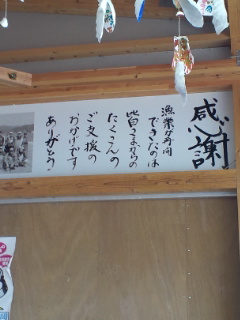 感謝
漁業が再開
できたのは
皆さまからの
たくさんの
ご支援の
おかげです
ありがとう!